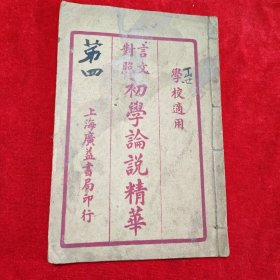 學校適用
言文對照
初學論說精華
上海廣益書局印行
第四